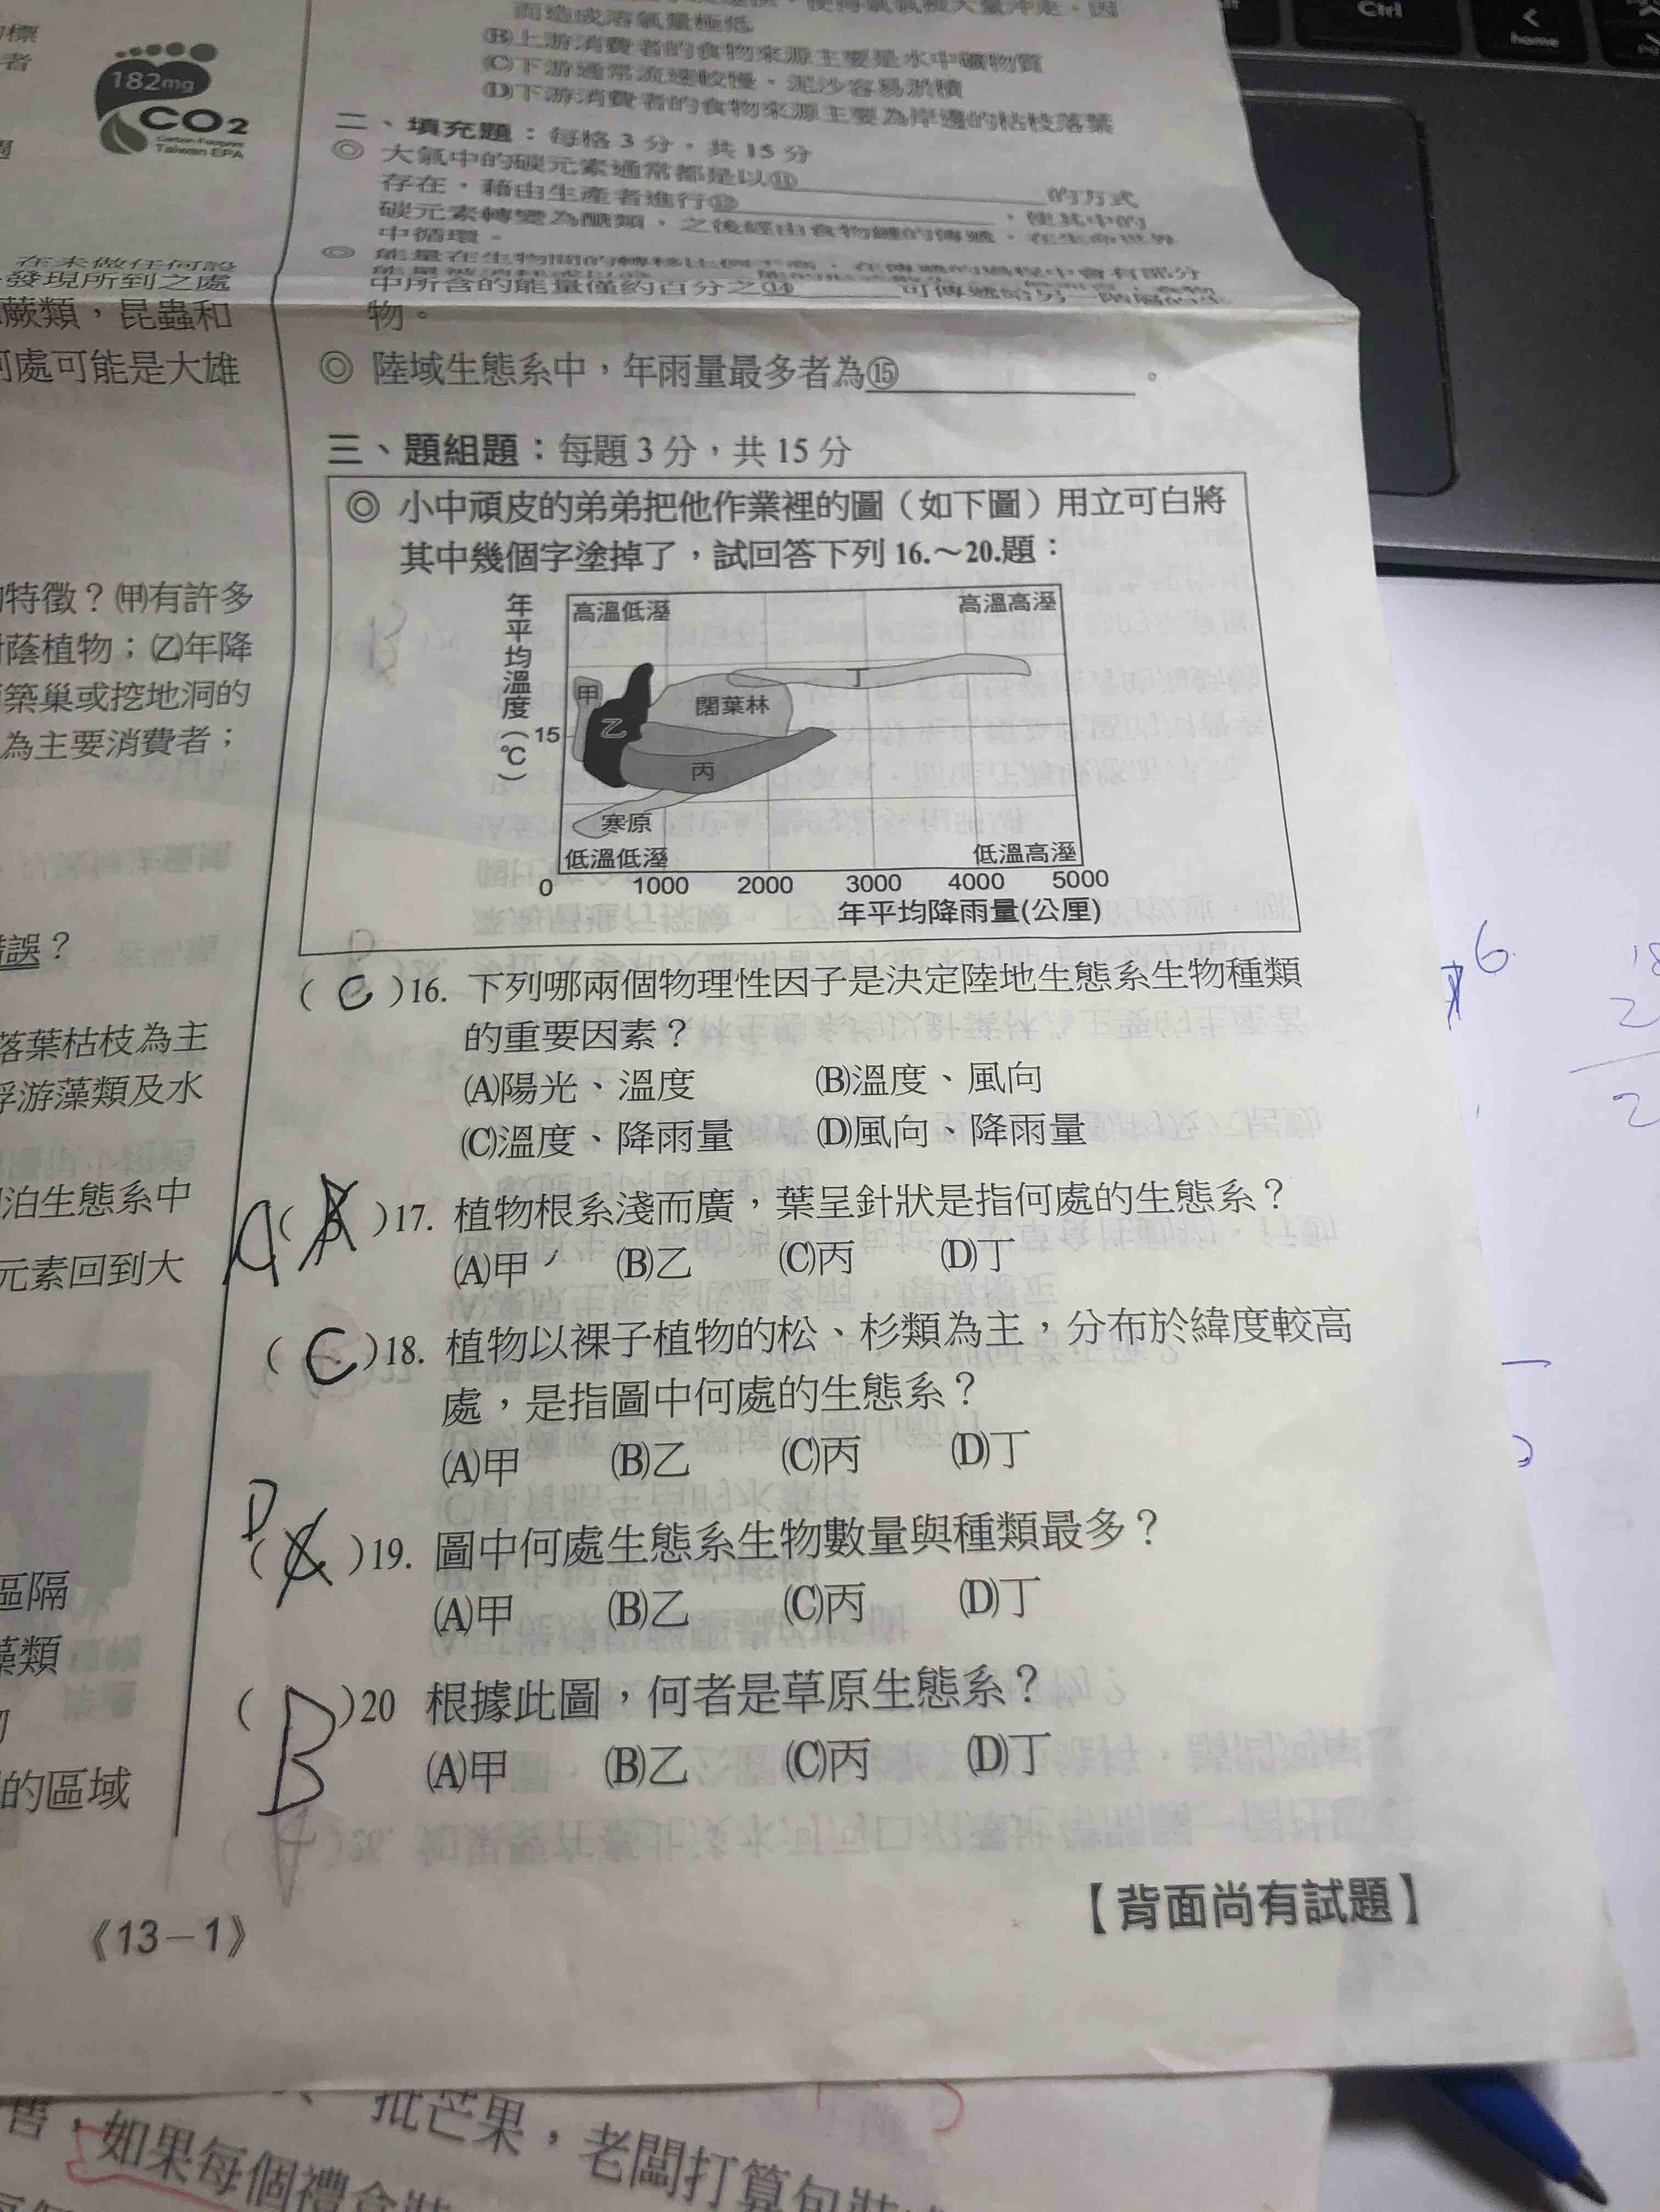 標
者
182mg
CO2
Carbon Footprint
Taiwan EPA
在未做任何設
發現所到之處
蕨類，昆蟲和
何處可能是大雄
特徵？(甲)有許多
蔭植物；(乙)年降
築巢或挖地洞的
為主要消費者；
錯誤？
落葉枯枝為主
浮游藻類及水
泊生態系中
元素回到大
區隔
藻類
的區域
而造成溶氧量極低
(B)上游消費者的食物來源主要是水中礦物質
(C)下游通常流速較慢，泥沙容易淤積
(D)下游消費者的食物來源主要為岸邊的枯枝落葉
二、填充題：每格 3 分，共 15 分
◎ 大氣中的碳元素通常都是以⑪ 的方式
存在，藉由生產者進行⑫ ，使其中的
碳元素轉變為醣類，之後經由食物鏈的傳遞，在生命世界
中循環。
◎ 能量在生物間的轉移比例不高，在傳遞的過程中會有部分
中所含的能量僅約百分之⑭ 可傳遞給另一階層的生
物。
◎ 陸域生態系中，年雨量最多者為⑮ 。
三、題組題：每題 3 分，共 15 分
◎ 小中頑皮的弟弟把他作業裡的圖（如下圖）用立可白將
其中幾個字塗掉了，試回答下列 16.～20.題：
年平均溫度(℃)
高溫低溼 高溫高溼
甲 丁
乙 闊葉林
15
丙
寒原
低溫低溼 低溫高溼
0 1000 2000 3000 4000 5000
年平均降雨量(公厘)
( C )16. 下列哪兩個物理性因子是決定陸地生態系生物種類
的重要因素？
(A)陽光、溫度 (B)溫度、風向
(C)溫度、降雨量 (D)風向、降雨量
A ( )17. 植物根系淺而廣，葉呈針狀是指何處的生態系？
(A)甲 (B)乙 (C)丙 (D)丁
( C )18. 植物以裸子植物的松、杉類為主，分布於緯度較高
處，是指圖中何處的生態系？
(A)甲 (B)乙 (C)丙 (D)丁
D ( )19. 圖中何處生態系生物數量與種類最多？
(A)甲 (B)乙 (C)丙 (D)丁
( B )20 根據此圖，何者是草原生態系？
(A)甲 (B)乙 (C)丙 (D)丁
《13－1》
【背面尚有試題】
6
Ctrl
<
home
批芒果，老闆打算包裝
售，如果每個禮盒裝